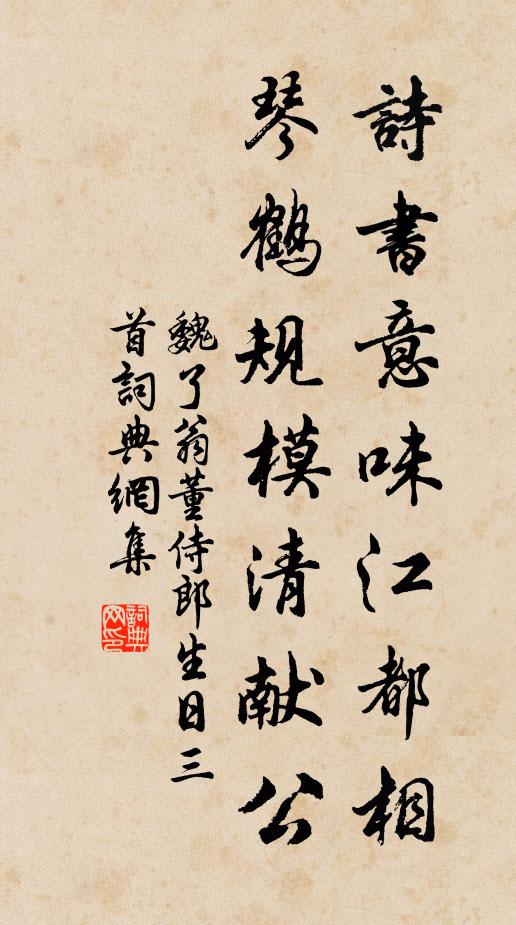 詩書意味江都相
琴鶴規模清献公
魏了翁董侍郎生日三
首詞典網集
詞典
网印